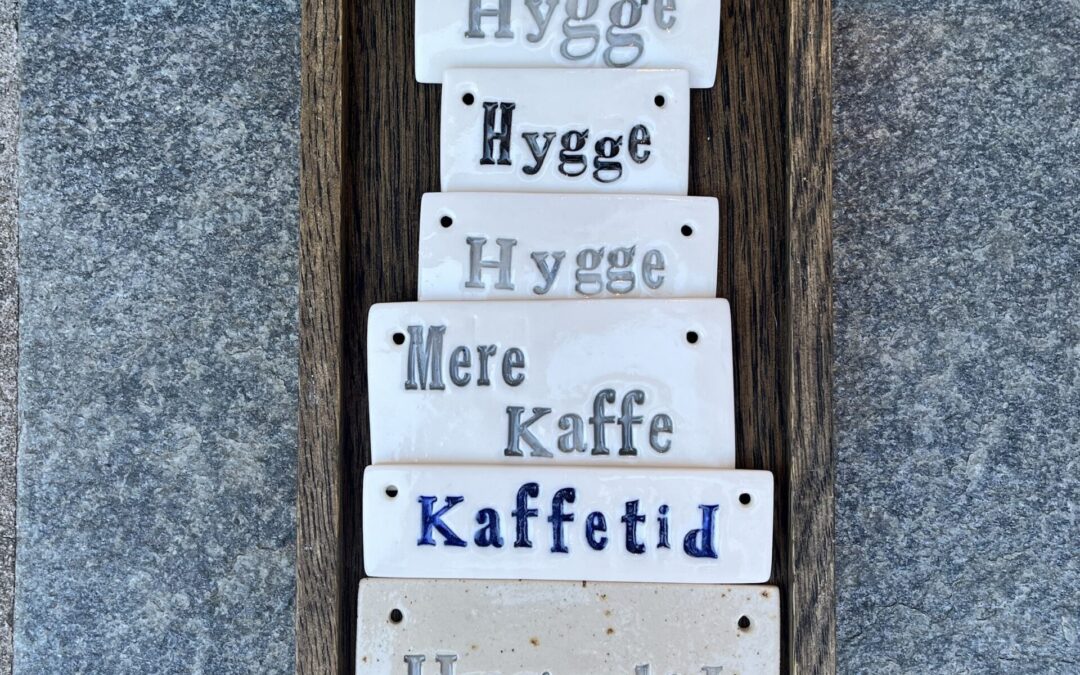 Hygge
Hygge
Hygge
Mere
Kaffe
Kaffetid